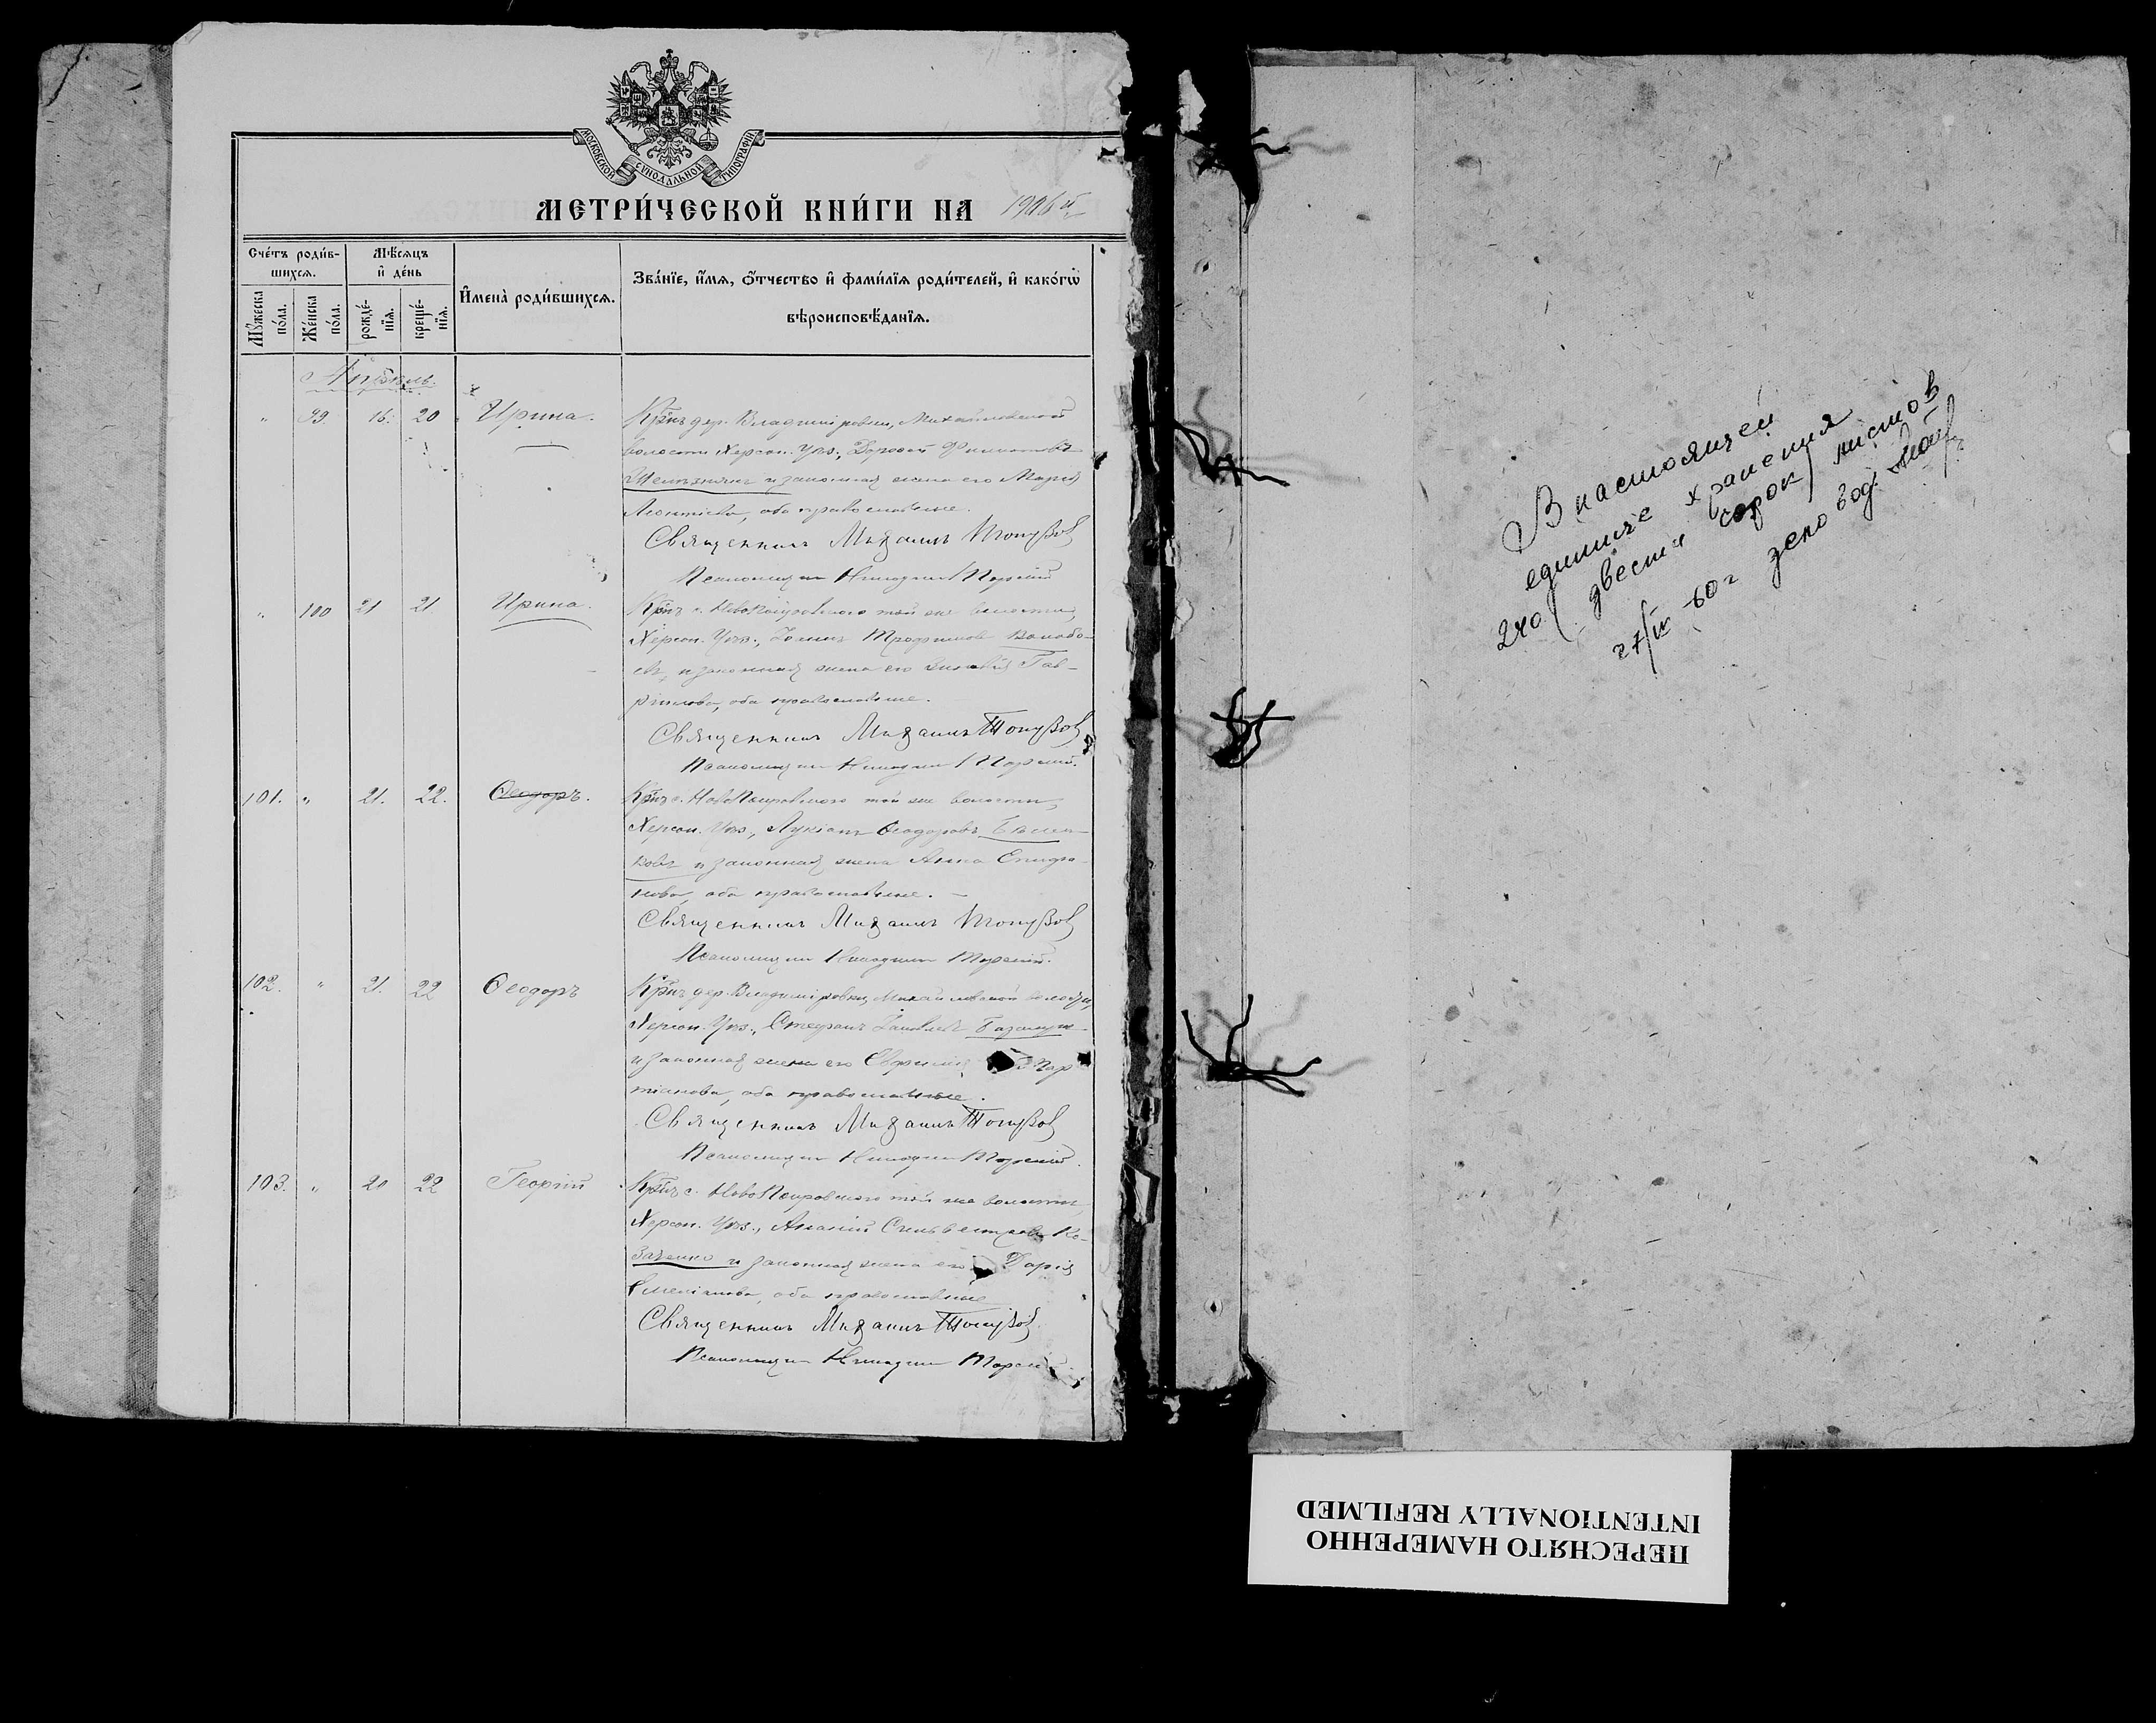 МОСКОВСКОЙ СУНОДАЛЬНОЙ ТИПОГРАФІИ
МЕТРИ́ЧЕСКОЙ КНИ́ГИ НА 19
Сче́тъ роди́в-
шихсѧ.
Мѣ́сѧцъ
и҆ де́нь
И҆мена̀ роди́вшихсѧ.
Зва́нїе, и҆́мѧ, ѻ҆́тчество и҆ фами́лїѧ роди́телей, и҆ како́гѡ
вѣроисповѣ́данїѧ.
Мꙋ́жеска по́ла.
Же́нска по́ла.
рожде́-
нїѧ.
креще́-
нїѧ.
Апрѣль.
" 99. 16. 20 Ирина.
Кр–нъ дер. Владиміровки, Михайловской
волости Херсон. Уѣз., Дорофей
и законная жена его Марія
Леонтіева, оба православные.
Священникъ Михаилъ
Псаломщикъ Никодим
" 100 21 21 Ирина.
Кр–нъ с. НовоПокровского той же волости,
Херсон. Уѣз., Іоаннъ Трофимовъ
и законная жена его Гав-
рилова, оба православные.
Священникъ Михаилъ
Псаломщикъ Никодим
101. " 21. 22. Ѳеодоръ.
Кр–нъ с. НовоПокровского той же волости,
Херсон. Уѣз., Лукіанъ Ѳеодоровъ
ковъ и законная жена Анна Епифа-
нова, оба православные.
Священникъ Михаилъ
Псаломщикъ Никодим
102. " 21. 22 Ѳеодоръ
Кр–нъ дер. Владиміровки Михайловской волости,
Херсон. Уѣз., Стефанъ Іаковлевъ
и законная жена его Евфимія Пар
оба православные.
Священникъ Михаилъ
Псаломщикъ Никодим
103. " 20 22 Георгій
Кр–нъ с. НовоПокровского той же волости,
Херсон. Уѣз., Ананій Сильвестровъ Ко-
заченко и законная жена его Дарія
Емеліанова, оба православные
Священникъ Михаилъ
Псаломщикъ Никодим
В настоящей
единице хранения
240 (двести сорок) листов
27/IV-60г
ПЕРЕСНЯТО НАМЕРЕННО
INTENTIONALLY REFILMED